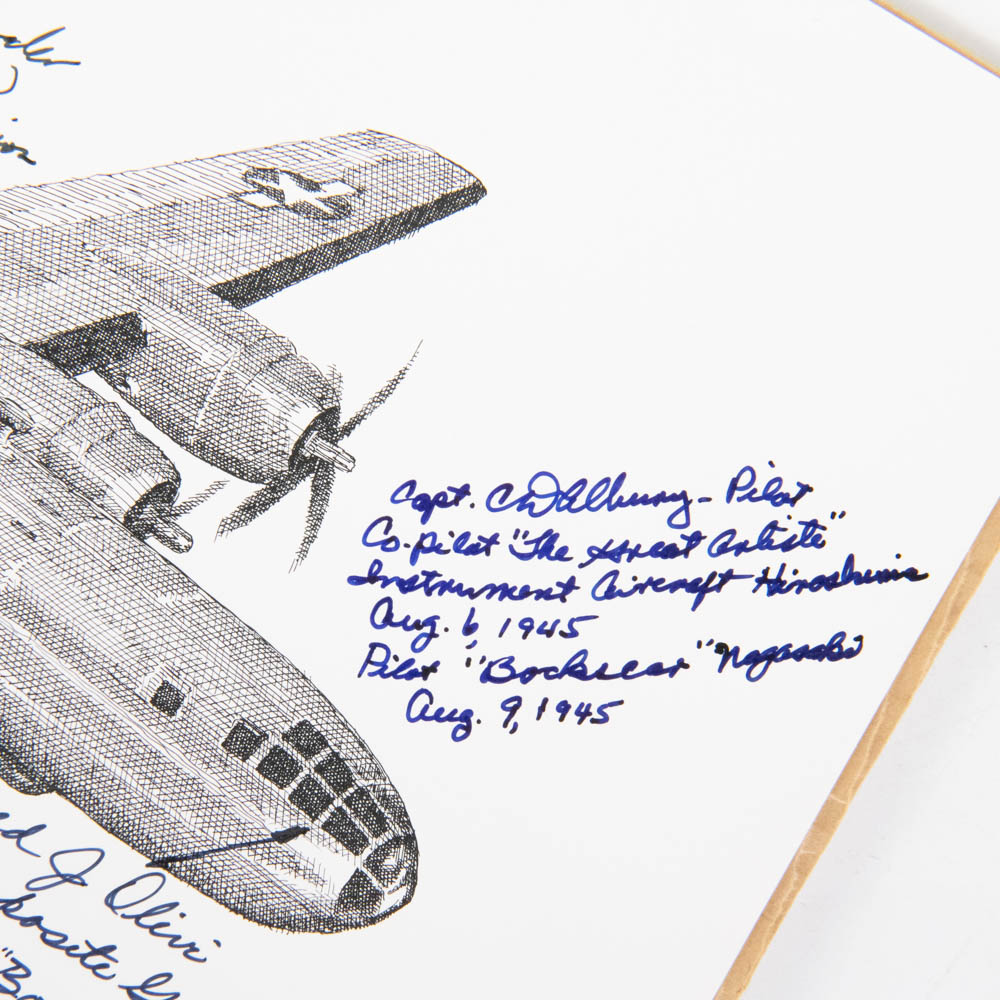 Capt. C D Albury - Pilot
Co-pilot "The Great Artiste"
Instrument Aircraft Hiroshima
Aug. 6, 1945
Pilot "Bockscar" Nagasaki
Aug. 9, 1945
J Olivi